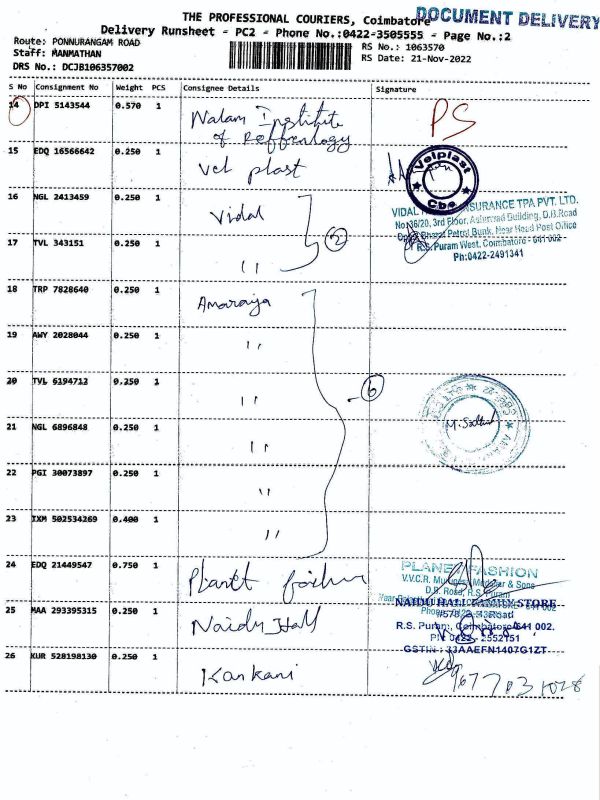 THE PROFESSIONAL COURIERS, Coimbatore
DOCUMENT DELIVERY
Delivery Runsheet - PC2 - Phone No.:0422-3505555 - Page No.:2
Route: PONNURANGAM ROAD
Staff: MANMATHAN
DRS No.: DCJB106357002
RS No.: 1063570
RS Date: 21-Nov-2022
S No Consignment No Weight PCS Consignee Details Signature
14 DPI 5143544 0.570 1 Nalam Institute PS
of
15 EDQ 16566642 0.250 1 Vel plast
Velplast
Cbe
16 NGL 2413459 0.250 1 Vidal
VIDAL INSURANCE TPA PVT. LTD.
No.36/20, 3rd Floor, Building, D.B.Road
Bharat Petrol Bunk, Near Head Post Office
R.S. Puram West, Coimbatore - 641 002
Ph:0422-2491341
17 TVL 343151 0.250 1 " 2
18 TRP 7828640 0.250 1 Amaraja
19 AWY 2028044 0.250 1 "
20 TVL 6194712 0.250 1 " 6
21 NGL 6896848 0.250 1 "
22 PGI 30073897 0.250 1 "
23 IXM 502534269 0.400 1 "
24 EDQ 21449547 0.750 1 Planet
PLANET FASHION
V.V.C.R. & Sons
D.B. Road, R.S. Puram
25 MAA 293395315 0.250 1 Naidu Hall
NAIDU HALL FAMILY STORE
R.S. Puram, Coimbatore-641 002.
PH 0422 - 2552151
GSTIN : 33AAEFN1407G1ZT
26 KUR 528198130 0.250 1 Kankani
9677031028